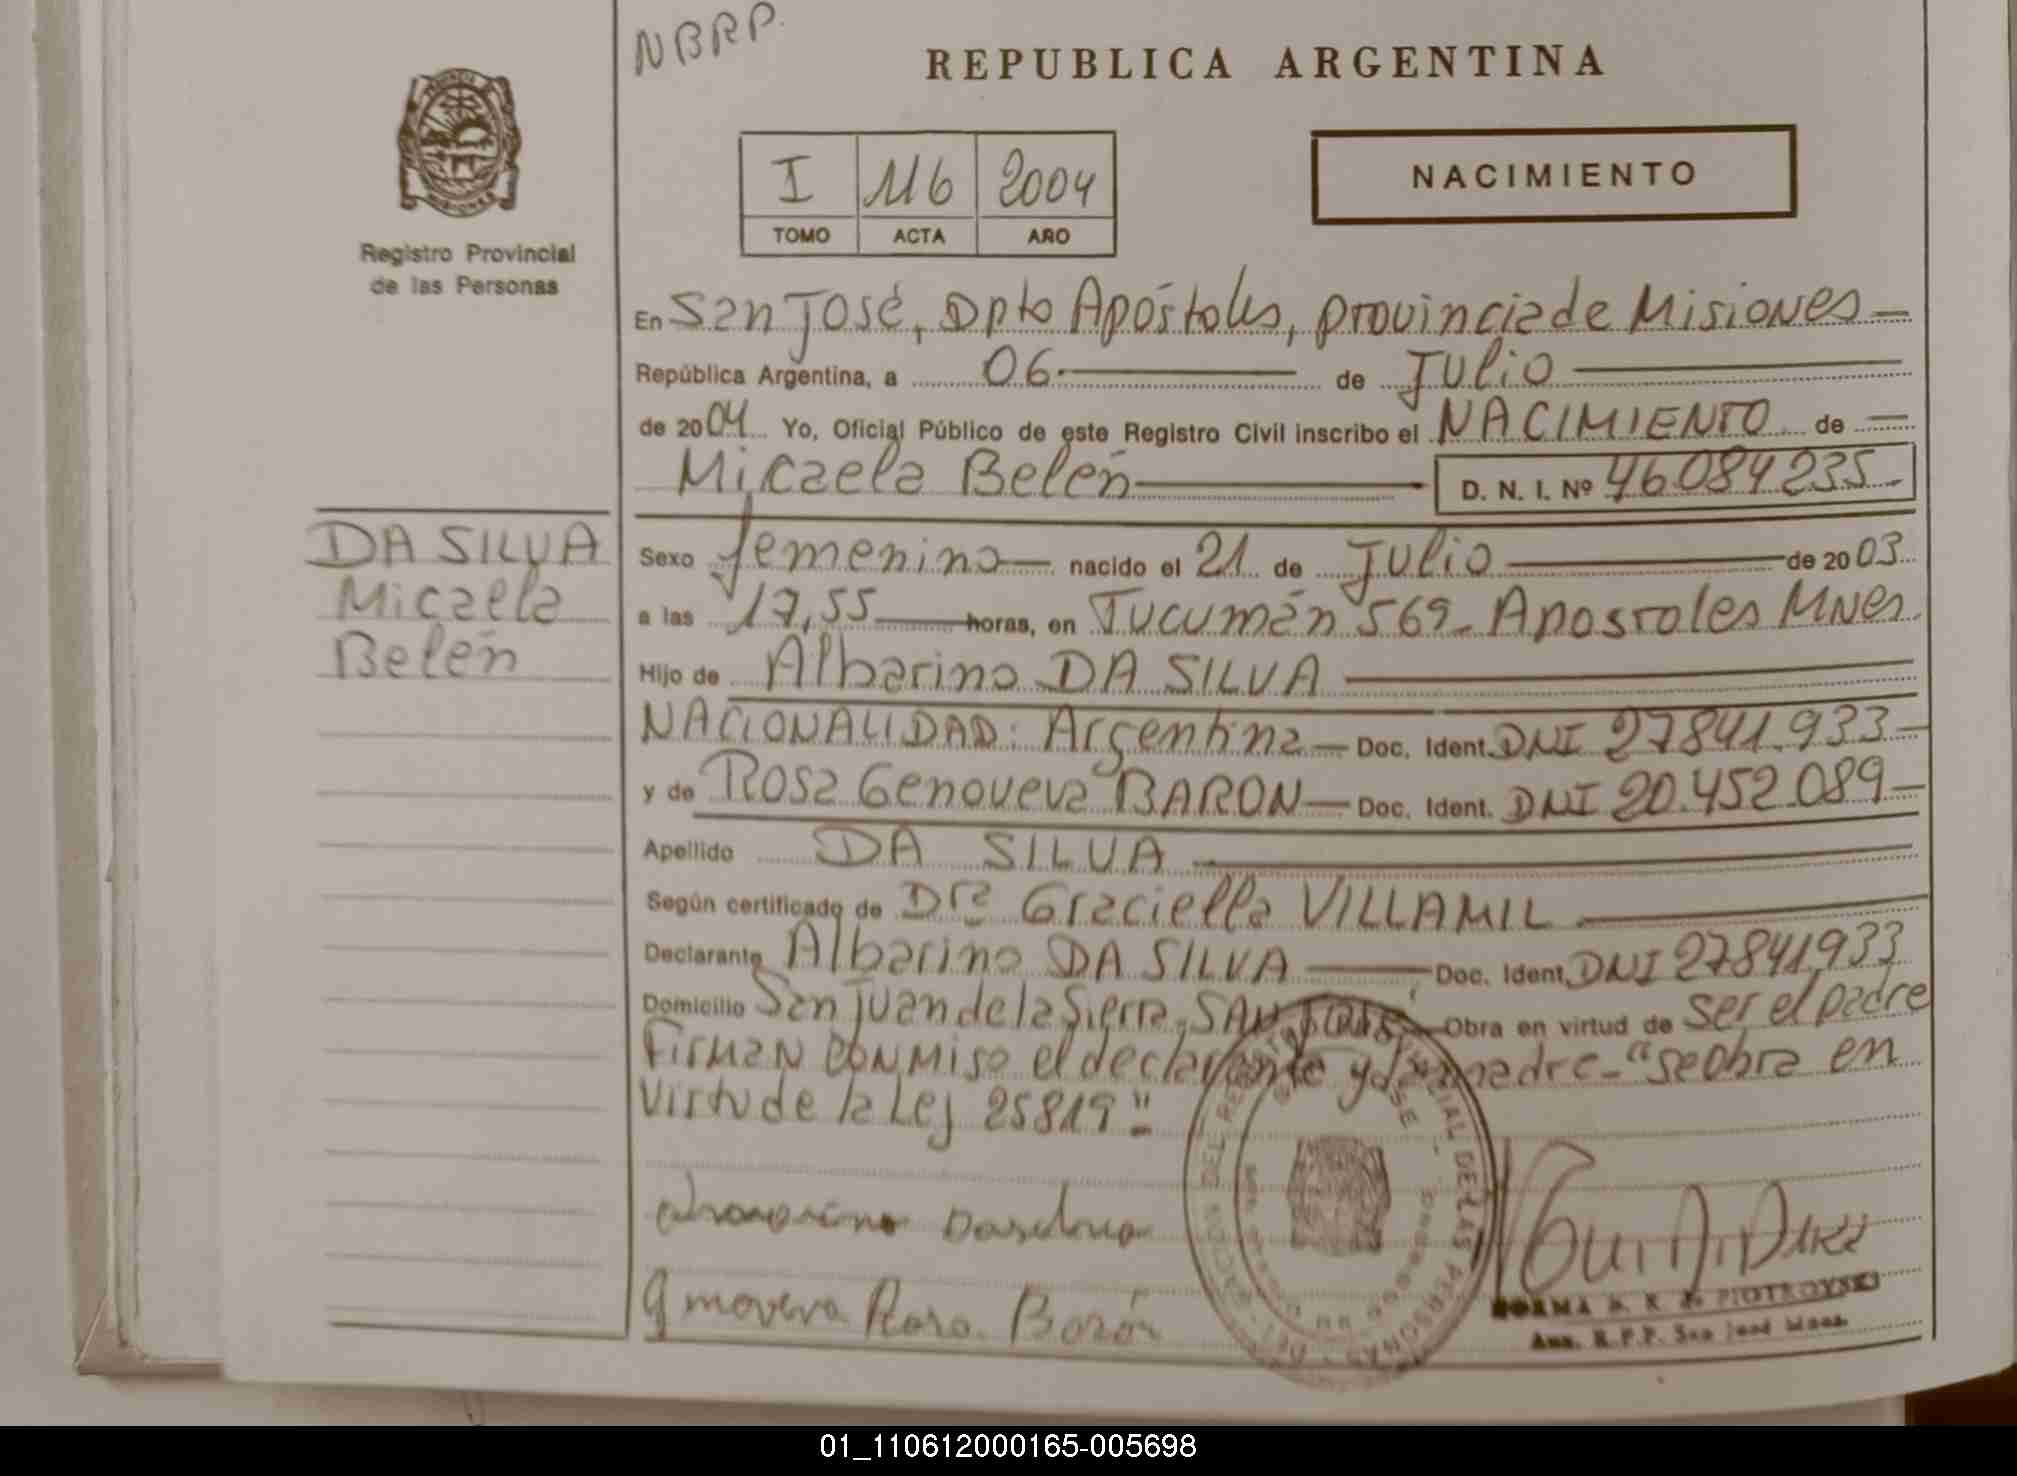 NBRP.
REPUBLICA ARGENTINA
I 116 2004
TOMO ACTA AÑO
NACIMIENTO
Registro Provincial
de las Personas
En San José, Dpto Apóstoles, provincia de Misiones
República Argentina, a 06 de Julio
de 2004 Yo, Oficial Público de este Registro Civil inscribo el NACIMIENTO de
Micaela Belén D. N. I. Nº 46084235
DA SILVA
Micaela
Belén
Sexo femenino nacido el 21 de Julio de 2003
a las 17,55 horas, en Tucumán 569 - Apostoles Mnes.
Hijo de Albarino DA SILVA
NACIONALIDAD: Argentina Doc. Ident. DNI 27841.933
y de Rosa Genoveva BARON Doc. Ident. DNI 20.452.089
Apellido DA SILVA
Según certificado de Dra Graciella VILLAMIL
Declarante Albarino DA SILVA Doc. Ident. DNI 27841,933
Domicilio San Juan de la Sierra, SAN JOSE Obra en virtud de ser el padre
Firman conmiso el declarante y la madre - "se obra en
Virtud de la Ley 25819"
Genoveva Rosa Barón
DEL REGISTRO PROVINCIAL DE LAS PERSONAS
NORMA PIOTROVSKI
Aux. R.P.P. San José Mnes.
01_110612000165-005698